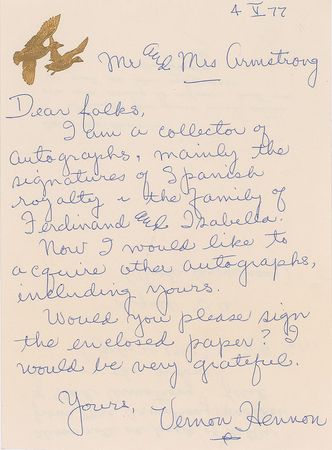 4 V 77
Mr and Mrs Armstrong
Dear folks,
I am a collector of
autographs, mainly the
signatures of Spanish
royalty & the family of
Ferdinand and Izabella.
Now I would like to
acquire other autographs,
including yours.
Would you please sign
the enclosed paper? I
would be very grateful.
Yours, Vernon Hennon